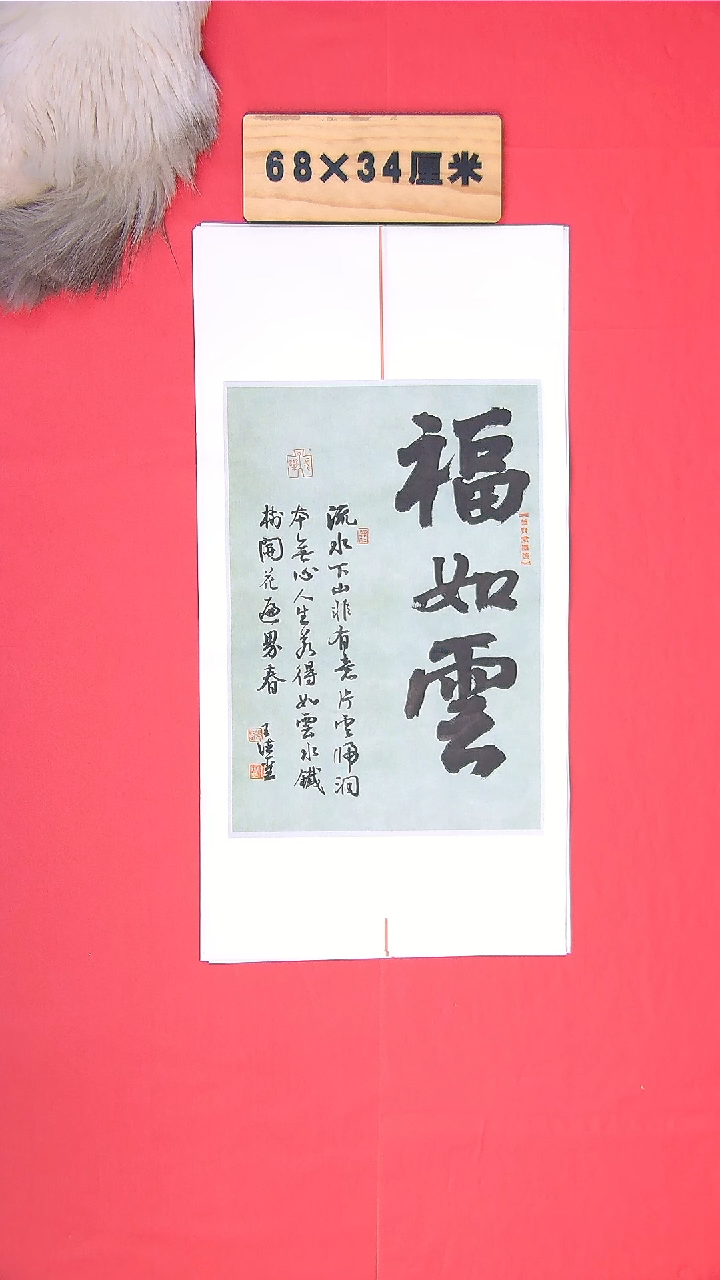 68×34厘米
福如雲
流水下山非有意片雲歸洞
本無心人生若得如雲水鐵
樹開花遍界春